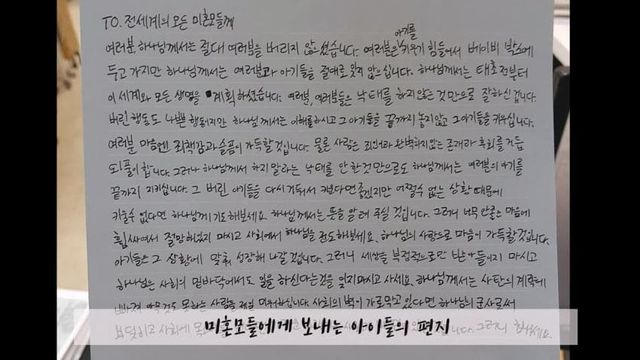 TO. 전세계의 모든 미혼모들께
여러분 하나님께서는 절대 여러분을 버리지 않으셨습니다. 여러분은 아기를 키우기 힘들어서 베이비 박스에
두고 가지만 하나님께서는 여러분과 아기들을 절대로 잊지 않으십니다. 하나님께서는 태초전부터
이 세계와 모든 생명을 계획하셨습니다. 여러분, 여러분들은 낙태를 하지않은 것 만으로 잘하신 겁니다.
버린 행동도 나쁜 행동이지만 하나님께서는 이해하시고 그 아기들을 끝까지 놓지않고 그 아기들을 키우십니다.
여러분 마음엔 죄책감과 슬픔이 가득할 것입니다. 물론 사람은 죄인이라 완벽하지않는 존재라 후회를 거듭
되풀이합니다. 그러나 하나님께서 하지 말라는 낙태를 안한것만으로도 하나님께서는 여러분의 아기를
끝까지 지키십니다. 그 버린 아기들을 다시 거둬서 키운다면 좋겠지만 어쩔수 없는 상황 때문에
키울수 없다면 하나님께 기도해보세요. 하나님께서는 뜻을 알려 주실 것입니다. 그러니 너무 안좋은 마음에
휩싸여서 절망하지 마시고 사회에서 하나님을 전도해보세요. 하나님의 사랑으로 마음이 가득할것입니다.
아기들은 그 상황에 맞춰 성장해 나갈 것입니다. 그러니 세상을 부정적으로만 받아들이지 마시고
하나님은 사회의 밑바닥에서도 일을 하신다는것을 잊지마시고 사세요. 하나님께서는 사탄의 계략에
빠져 아무것도 못하는 사람을 제일 미워하십니다. 사회의 벽이 가로막고있다면 하나님의 군사로써
부딪히고 사회에
미혼모들에게 보내는 아이들의 편지